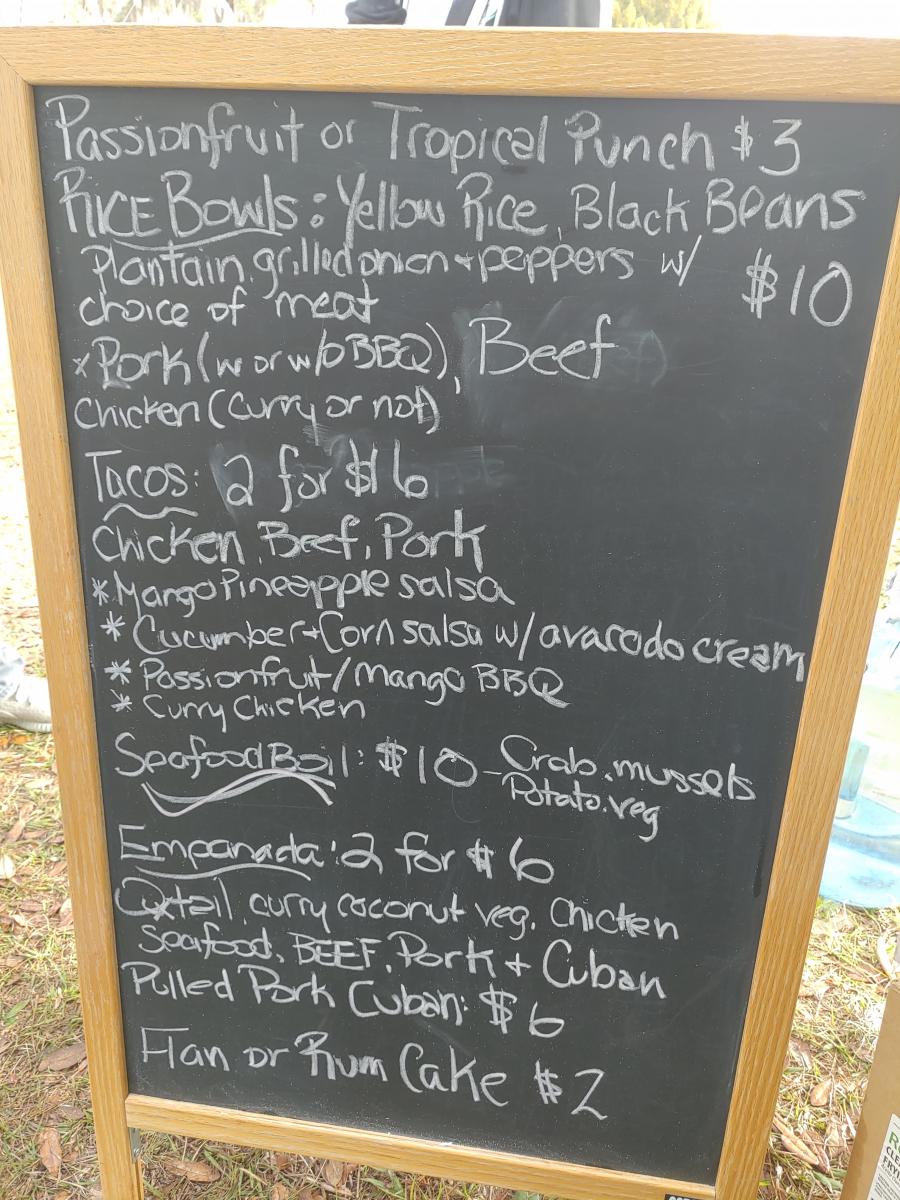 Passionfruit or Tropical Punch $3
RICE Bowls: Yellow Rice, Black Beans
Plantain, grilled onion + peppers w/ $10
choice of meat
*Pork (w or w/o BBQ), Beef
Chicken (curry or not)
Tacos: 2 for $6
Chicken, Beef, Pork
*Mango Pineapple salsa
* Cucumber + Corn salsa w/ avacado cream
* Passionfruit/Mango BBQ
* Curry Chicken
Seafood Boil: $10 - Crab, mussels
Potato, veg
Empanada: 2 for $6
Oxtail, curry coconut veg, Chicken
Seafood, BEEF, Pork + Cuban
Pulled Pork Cuban: $6
Flan or Rum Cake $2